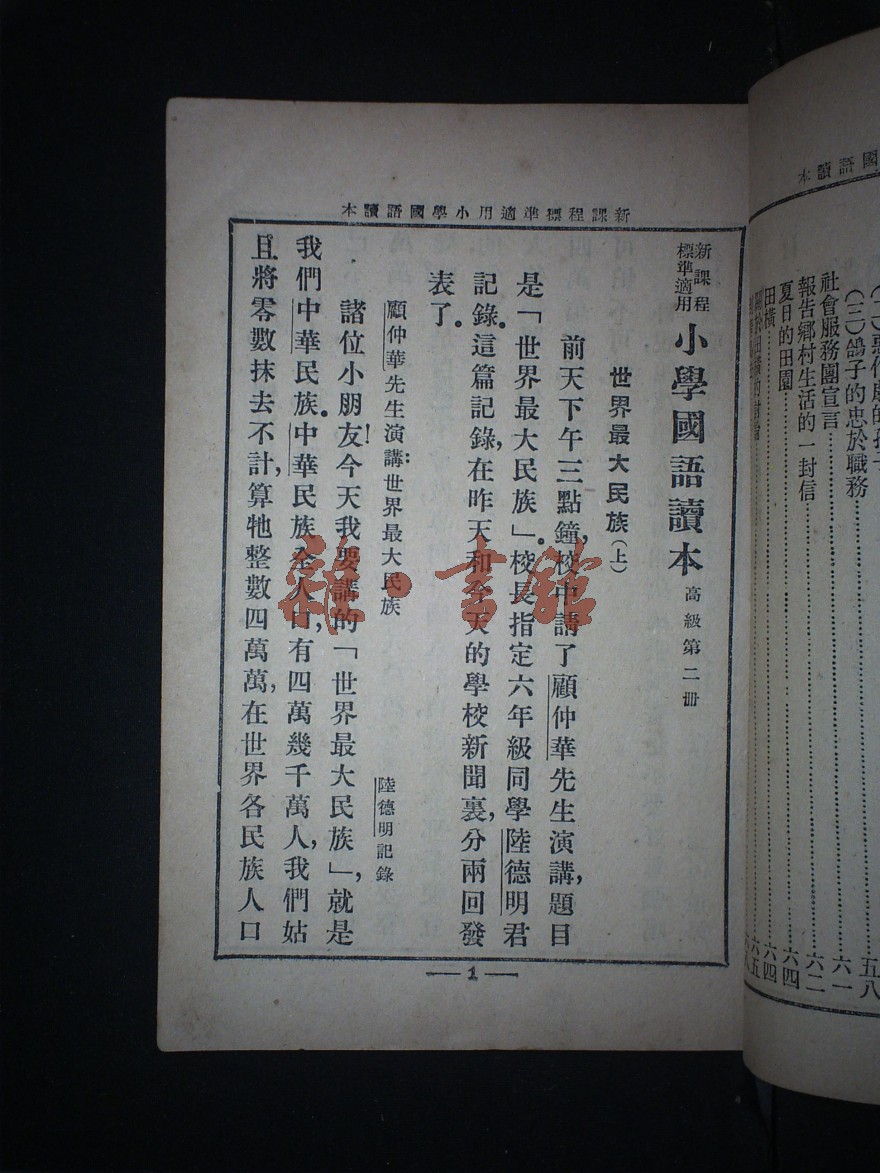 新課程標準適用小學國語讀本
新課程
標準適用
小學國語讀本
高級第二册
世界最大民族(上)
前天下午三點鐘,校中請了顧仲華先生演講,題目
是「世界最大民族」。校長指定六年級同學陸德明君
記錄。這篇記錄,在昨天和今天的學校新聞裏,分兩回發
表了。
顧仲華先生演講:世界最大民族
陸德明記錄
諸位小朋友!今天我要講的「世界最大民族」,就是
我們中華民族。中華民族全人口,有四萬幾千萬人,我們姑
且將零數抹去不計,算牠整數四萬萬,在世界各民族人口
1
國語讀本
(三)鴿子的忠於職務
五八
社會服務團宣言
六一
報告鄉村生活的一封信
六二
夏日的田園
六四
田橫
六四
六五
雜·書館